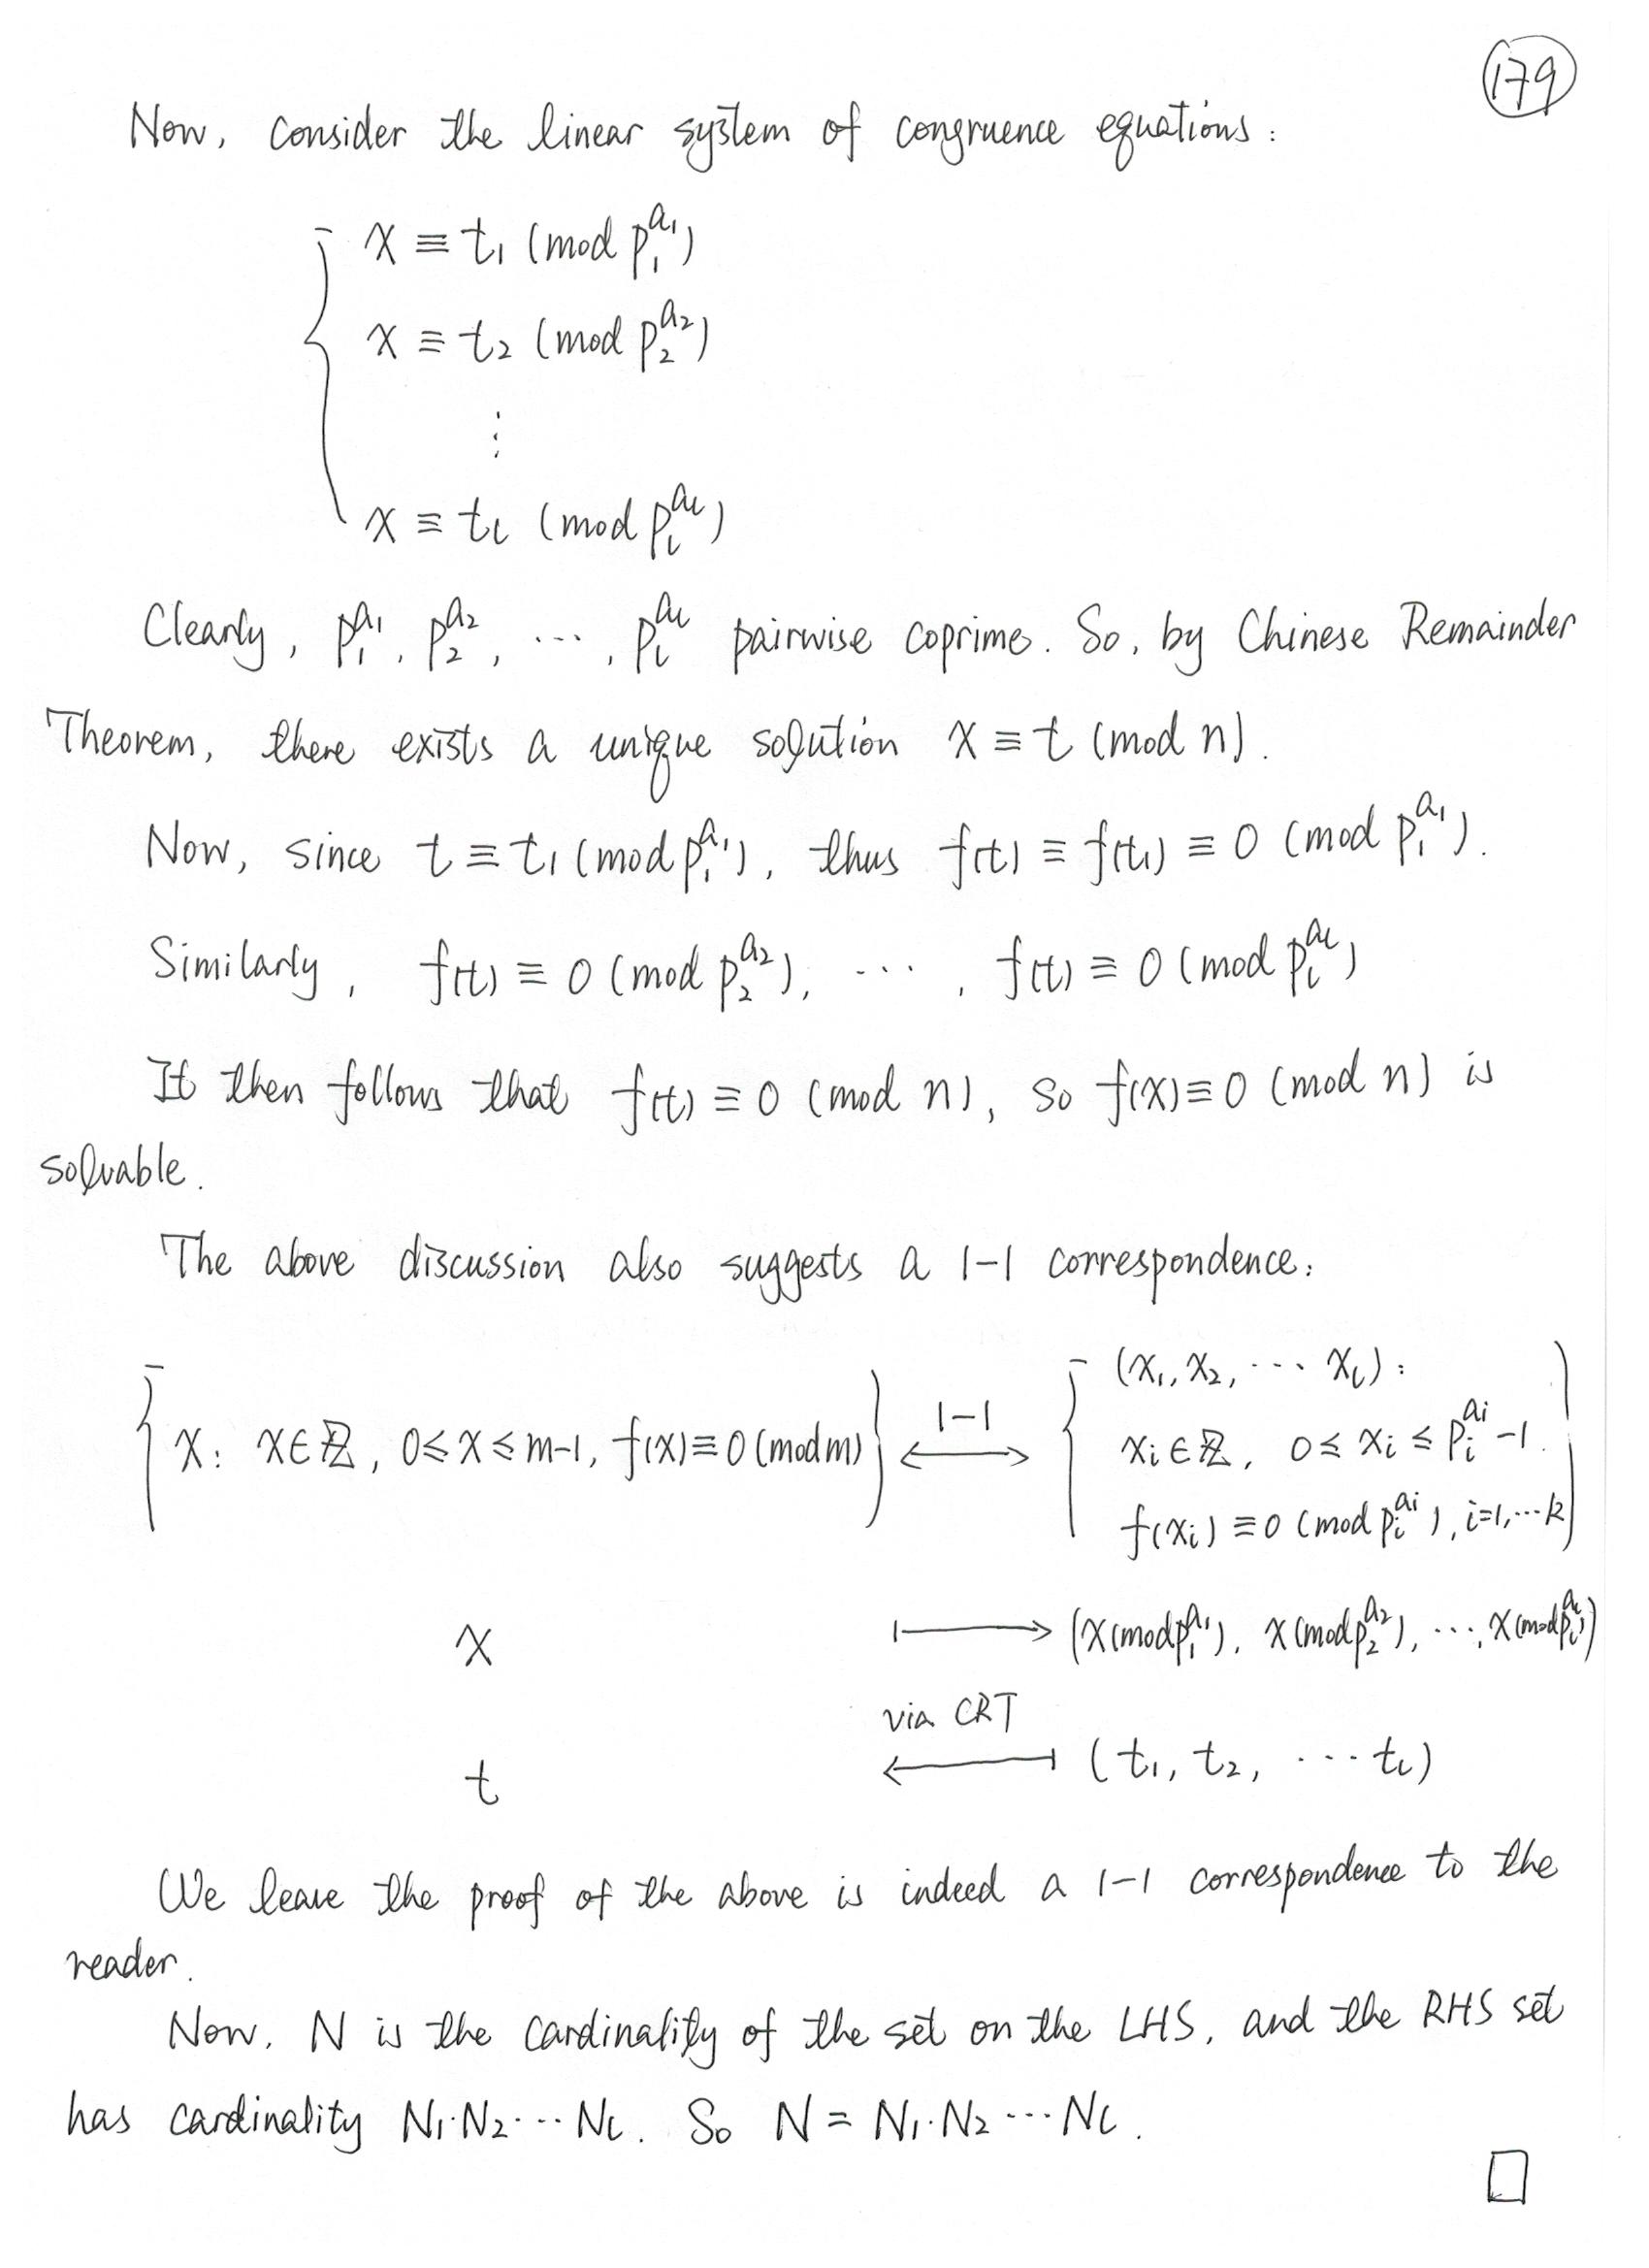 179
Now, consider the linear system of congruence equations:
x ≡ t₁ (mod p₁^a₁)
x ≡ t₂ (mod p₂^a₂)
⋮
x ≡ tₗ (mod pₗ^aₗ)
Clearly, p₁^a₁, p₂^a₂, ⋯, pₗ^aₗ pairwise coprime. So, by Chinese Remainder
Theorem, there exists a unique solution x ≡ t (mod n).
Now, since t ≡ t₁ (mod p₁^a₁), thus f(t) ≡ f(t₁) ≡ 0 (mod p₁^a₁).
Similarly, f(t) ≡ 0 (mod p₂^a₂), ⋯, f(t) ≡ 0 (mod pₗ^aₗ)
It then follows that f(t) ≡ 0 (mod n), so f(x) ≡ 0 (mod n) is
solvable.
The above discussion also suggests a 1-1 correspondence:
{x: x∈ℤ, 0≤x≤m-1, f(x)≡0 (mod m)} ⟷ 1-1 { (x₁, x₂, ⋯ xₗ):
xᵢ∈ℤ, 0≤xᵢ≤pᵢ^aᵢ-1.
f(xᵢ)≡0 (mod pᵢ^aᵢ), i=1,⋯k }
x ⟼ (x(mod p₁^a₁), x(mod p₂^a₂), ⋯, x(mod pₗ^aₗ))
via CRT
t ⟻ (t₁, t₂, ⋯ tₗ)
We leave the proof of the above is indeed a 1-1 correspondence to the
reader.
Now, N is the cardinality of the set on the LHS, and the RHS set
has cardinality N₁·N₂⋯Nₗ. So N = N₁·N₂⋯Nₗ.
□